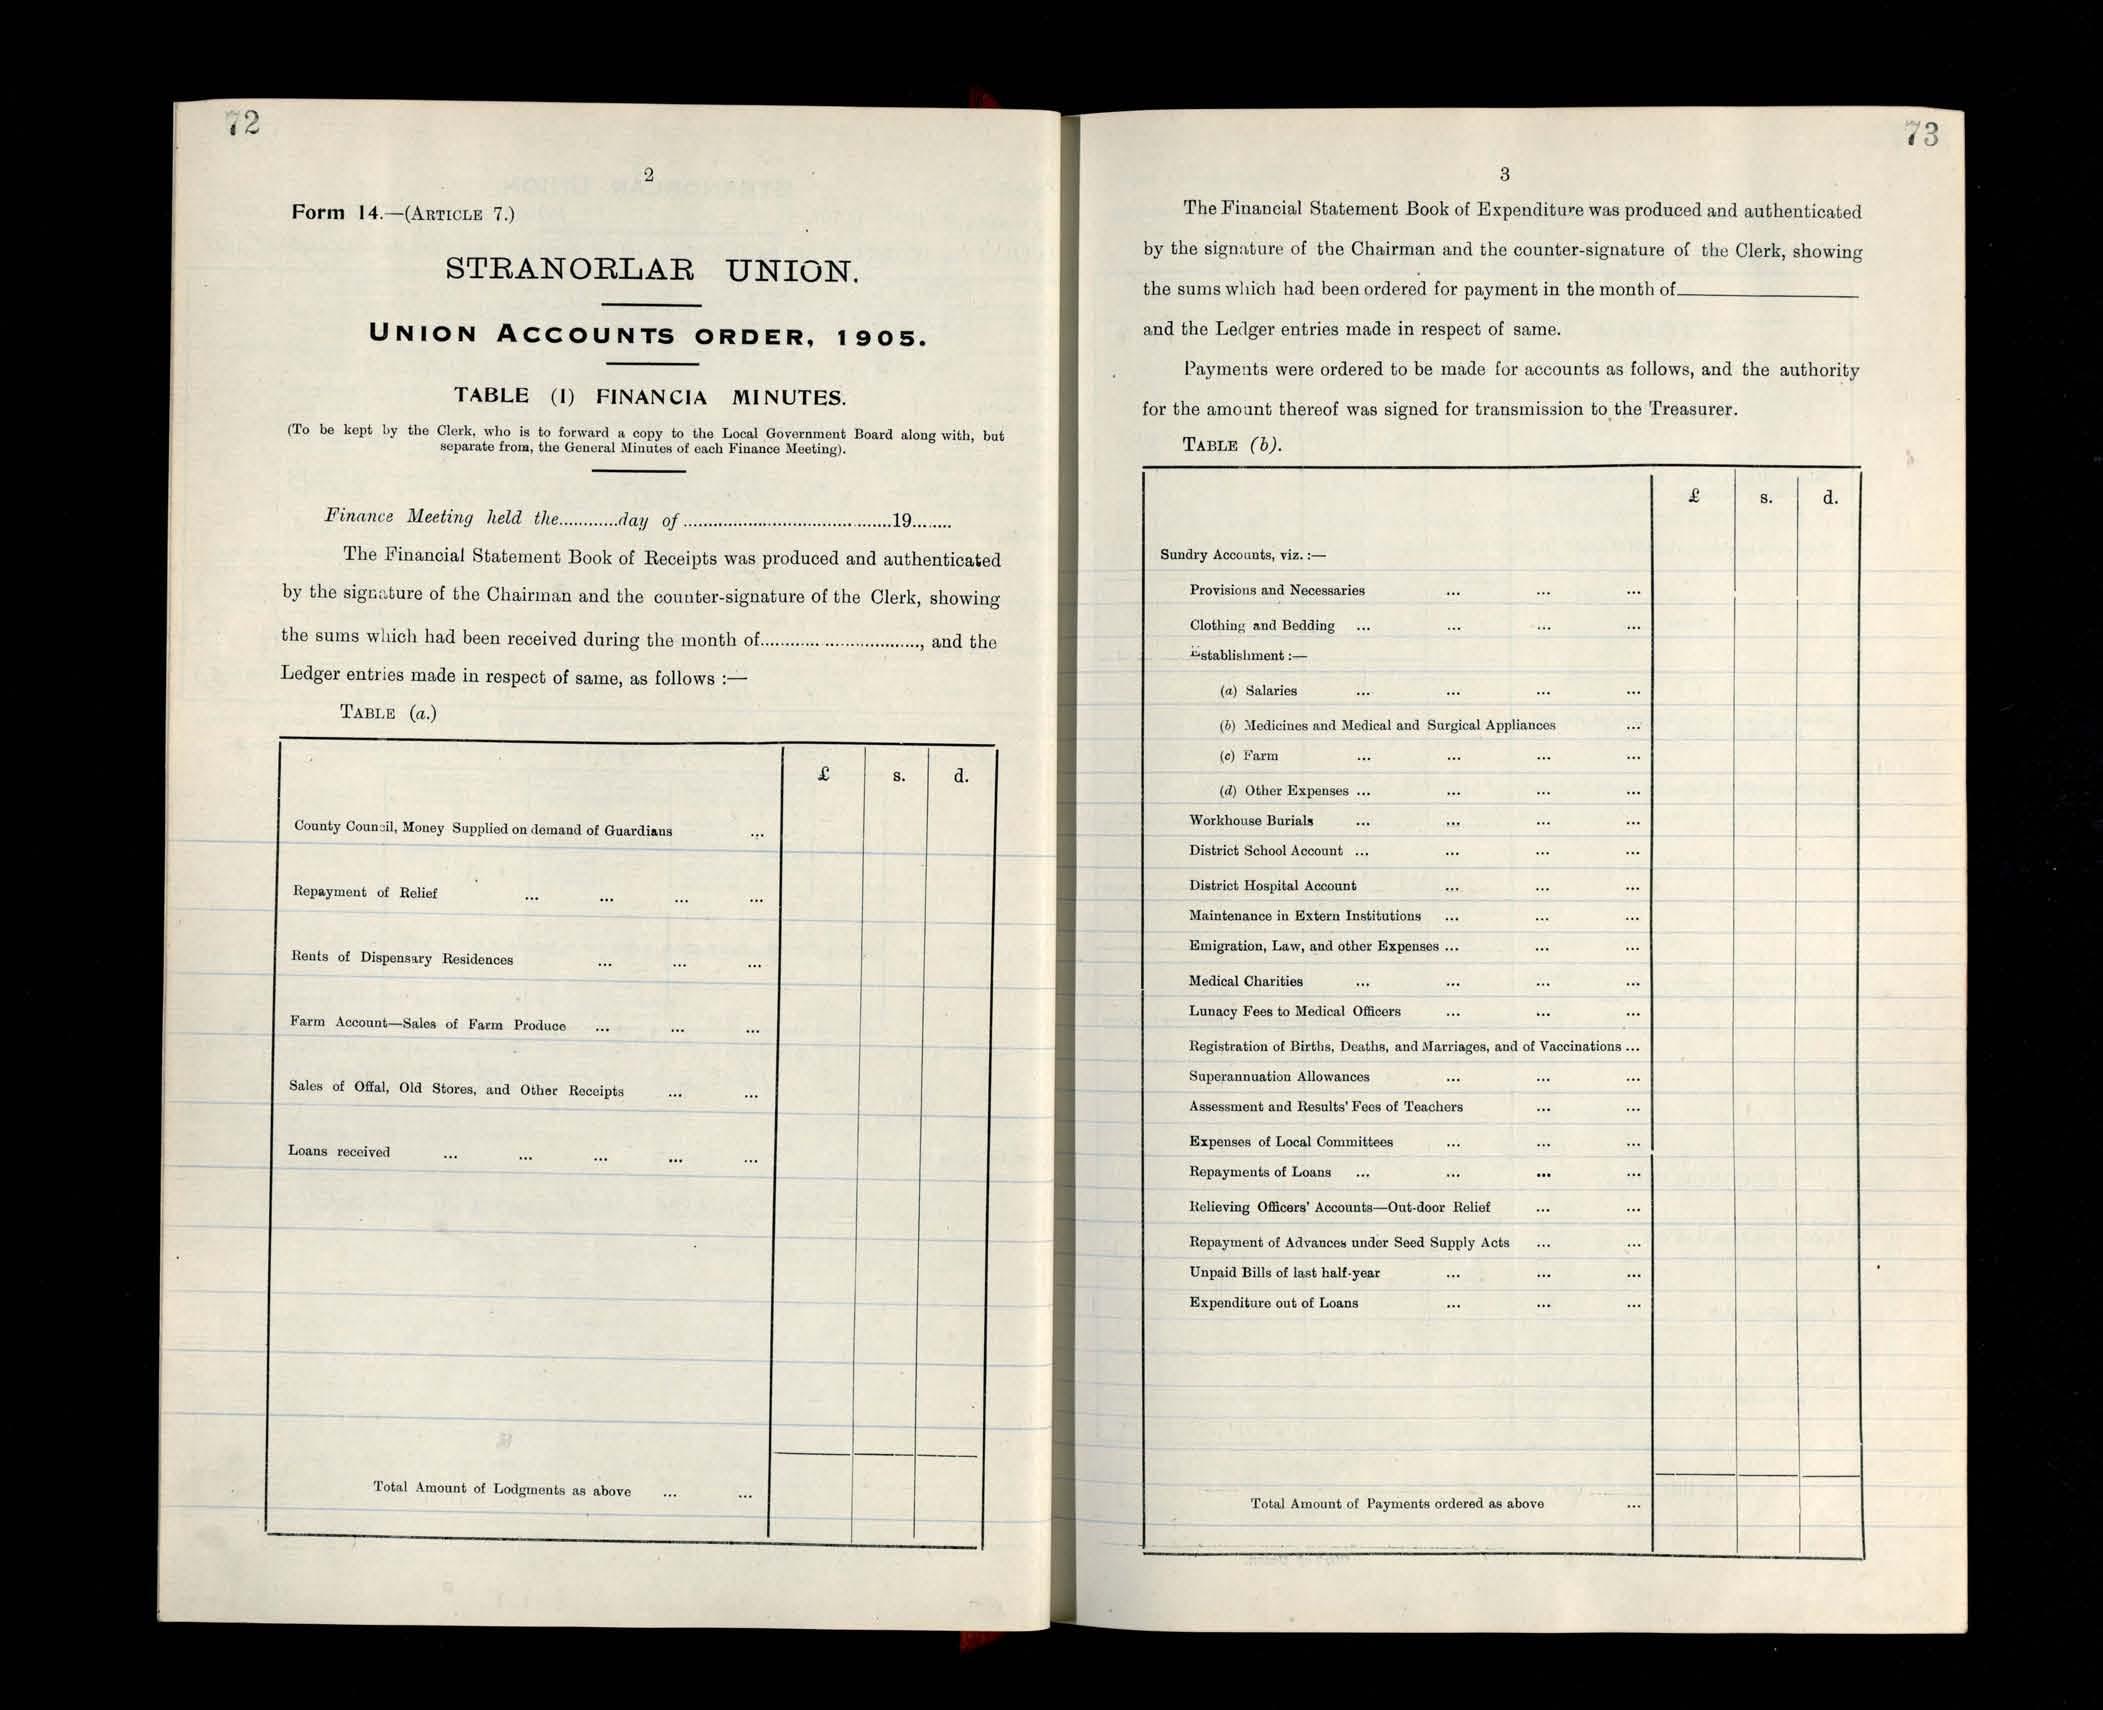 72
2
Form 14.—(ARTICLE 7.)
STRANORLAR UNION.
UNION ACCOUNTS ORDER, 1905.
TABLE (I) FINANCIA MINUTES.
(To be kept by the Clerk, who is to forward a copy to the Local Government Board along with, but
separate from, the General Minutes of each Finance Meeting).
Finance Meeting held the............day of ..........................................19........
The Financial Statement Book of Receipts was produced and authenticated
by the signature of the Chairman and the counter-signature of the Clerk, showing
the sums which had been received during the month of................................, and the
Ledger entries made in respect of same, as follows :—
TABLE (a.)
£ s. d.
County Council, Money Supplied on demand of Guardians ...
Repayment of Relief ... ... ... ...
Rents of Dispensary Residences ... ... ...
Farm Account—Sales of Farm Produce ... ... ...
Sales of Offal, Old Stores, and Other Receipts ... ...
Loans received ... ... ... ... ...
Total Amount of Lodgments as above ... ...
73
3
The Financial Statement Book of Expenditure was produced and authenticated
by the signature of the Chairman and the counter-signature of the Clerk, showing
the sums which had been ordered for payment in the month of
and the Ledger entries made in respect of same.
Payments were ordered to be made for accounts as follows, and the authority
for the amount thereof was signed for transmission to the Treasurer.
TABLE (b).
£ s. d.
Sundry Accounts, viz. :—
Provisions and Necessaries ... ... ...
Clothing and Bedding ... ... ... ...
Establishment :—
(a) Salaries ... ... ... ...
(b) Medicines and Medical and Surgical Appliances ...
(c) Farm ... ... ... ...
(d) Other Expenses ... ... ... ...
Workhouse Burials ... ... ... ...
District School Account ... ... ... ...
District Hospital Account ... ... ...
Maintenance in Extern Institutions ... ... ...
Emigration, Law, and other Expenses ... ... ...
Medical Charities ... ... ... ...
Lunacy Fees to Medical Officers ... ... ...
Registration of Births, Deaths, and Marriages, and of Vaccinations ...
Superannuation Allowances ... ... ...
Assessment and Results' Fees of Teachers ... ...
Expenses of Local Committees ... ... ...
Repayments of Loans ... ... ... ...
Relieving Officers' Accounts—Out-door Relief ... ...
Repayment of Advances under Seed Supply Acts ... ...
Unpaid Bills of last half-year ... ... ...
Expenditure out of Loans ... ... ...
Total Amount of Payments ordered as above ...